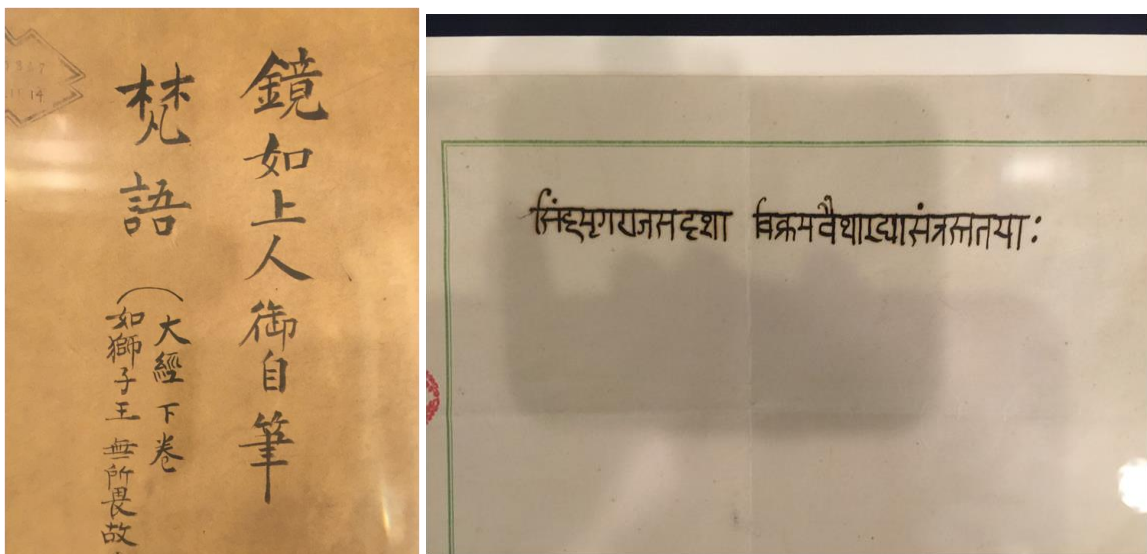 鏡如上人御自筆
梵語
（大經下卷
如獅子王無所畏故
सिंहमृगराजसदृशा विक्रमवैशारद्यासंत्रस्ततया: